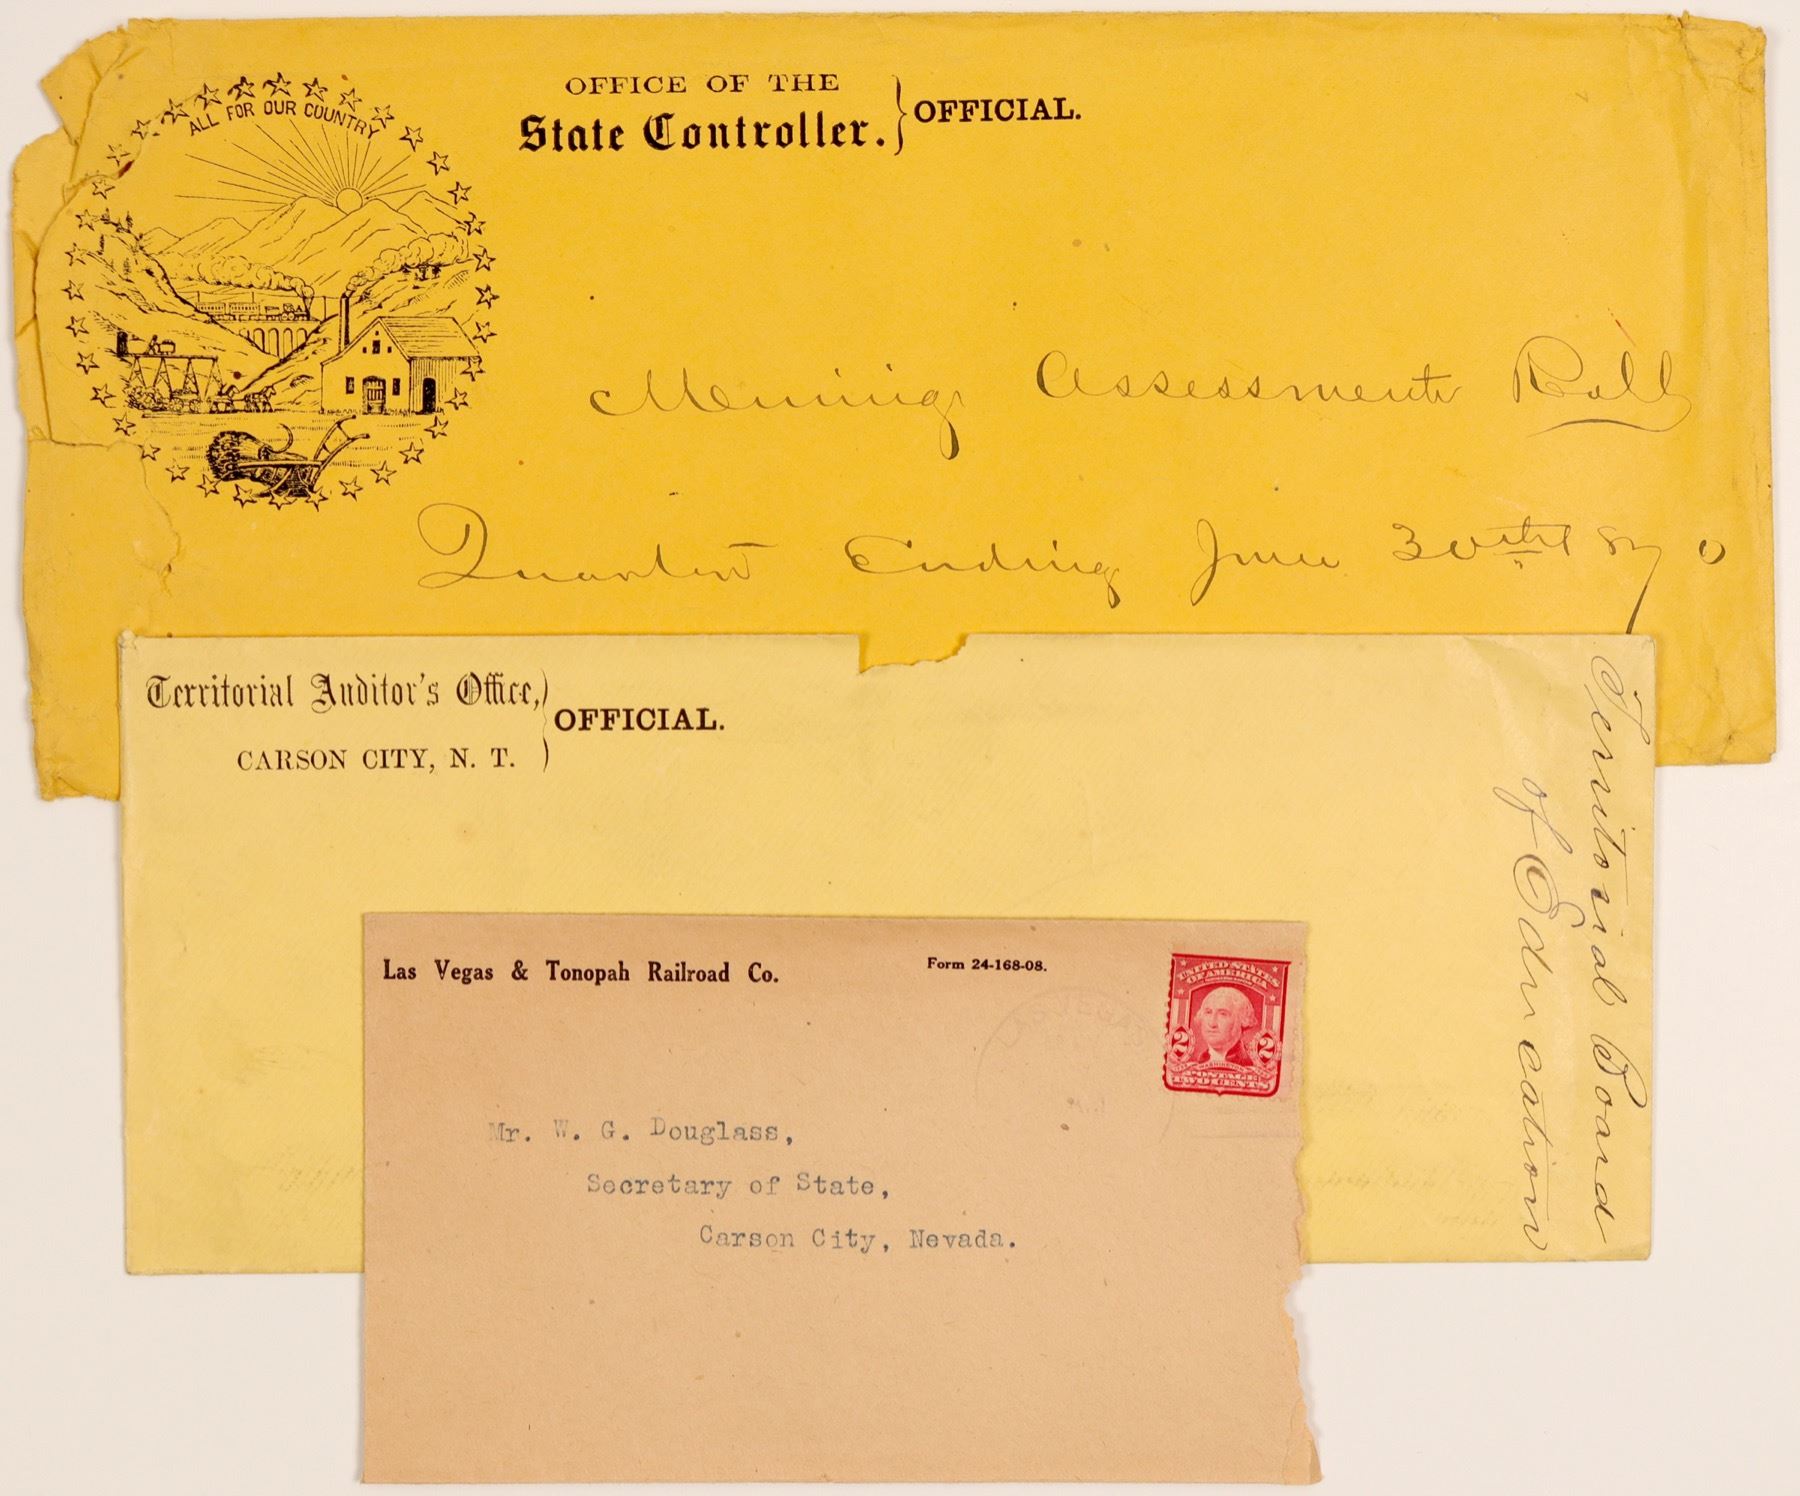 ALL FOR OUR COUNTRY
OFFICE OF THE
State Controller.
OFFICIAL.
Mining Assessment Roll
Quarter Ending June 30th 1870
Territorial Auditor's Office,
CARSON CITY, N. T.
OFFICIAL.
Territorial Board
of Education
Las Vegas & Tonopah Railroad Co.
Form 24-168-08.
UNITED STATES
OF AMERICA
2 2
WASHINGTON
POSTAGE
TWO CENTS
Mr. W. G. Douglass,
Secretary of State,
Carson City, Nevada.